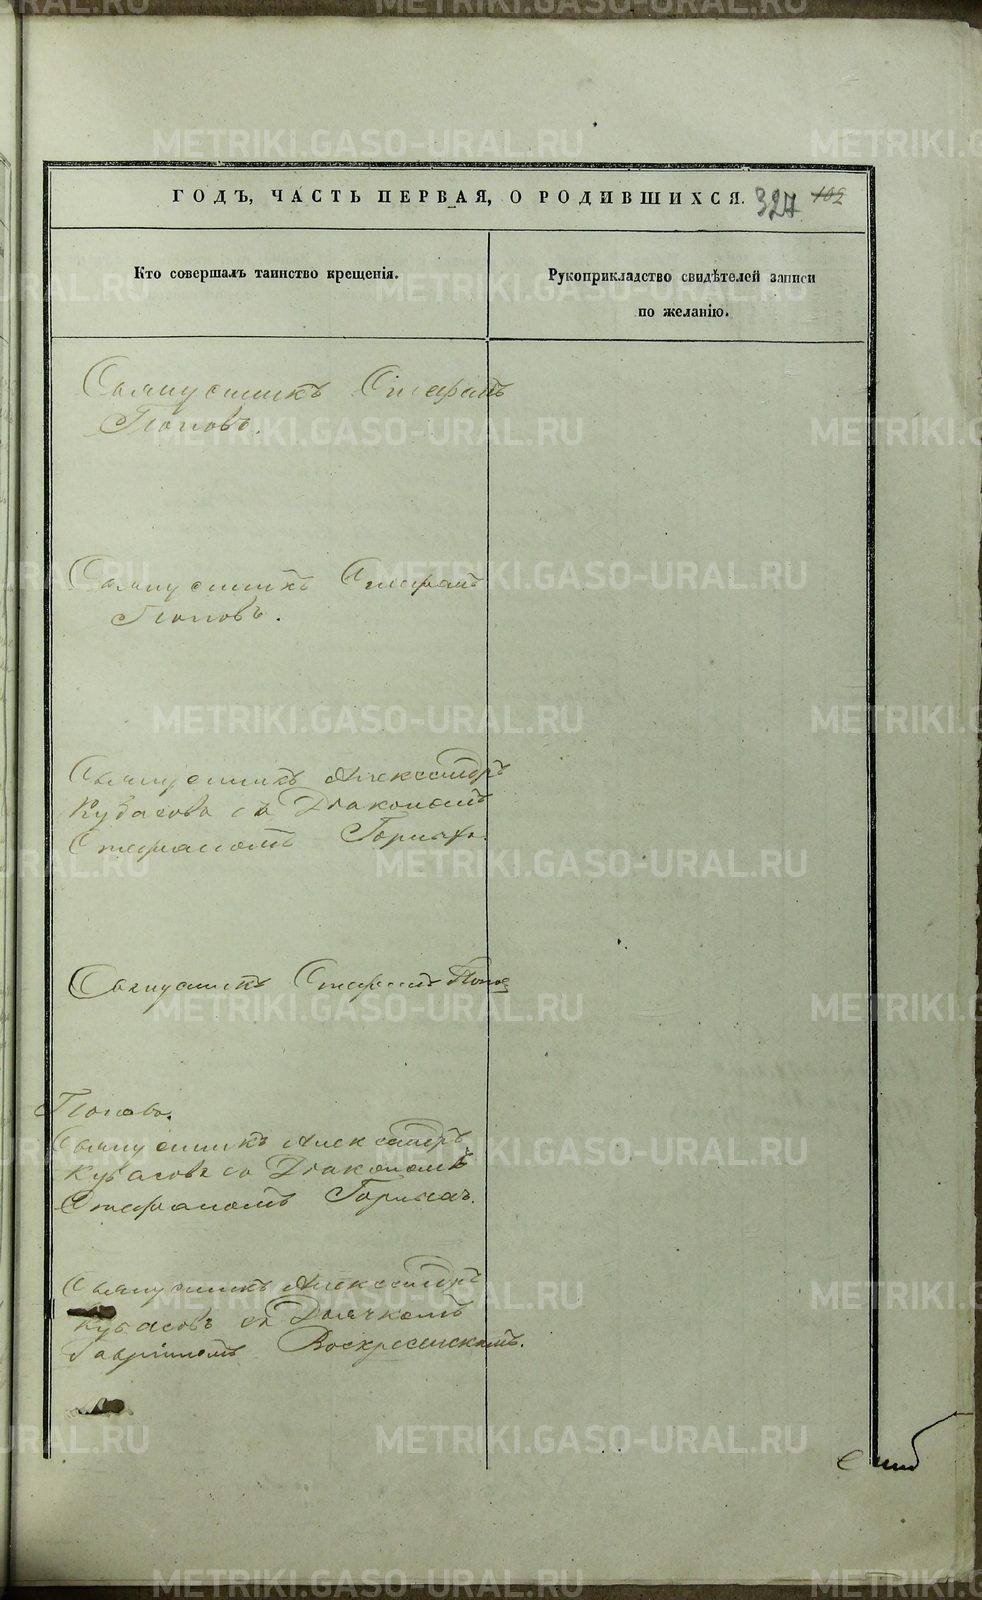 ГОДЪ, ЧАСТЬ ПЕРВАЯ, О РОДИВШИХСЯ. 327 102
Кто совершалъ таинство крещенія.
Рукоприкладство свидѣтелей записи
по желанію.
Священникъ Стефанъ
Поповъ.
Священникъ Стефанъ
Поповъ.
Священникъ Александръ
Кубасовъ съ Діакономъ
Стефаномъ
Священникъ Стефанъ Попов
Поповъ.
Священникъ Александръ
Кубасовъ съ Діакономъ
Стефаномъ
Священникъ Александръ
Кубасовъ съ Дьячкомъ
Гавріиломъ Воскресенскимъ.
METRIKI.GASO-URAL.RU